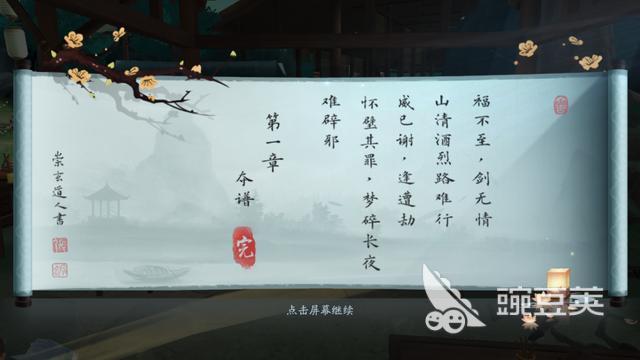 福不至，剑无情
山清酒烈路难行
威已谢，逢遭劫
怀璧其罪，梦碎长夜
难辟邪
第一章
夲谱
完
崇玄道人书
点击屏幕继续
豌豆荚